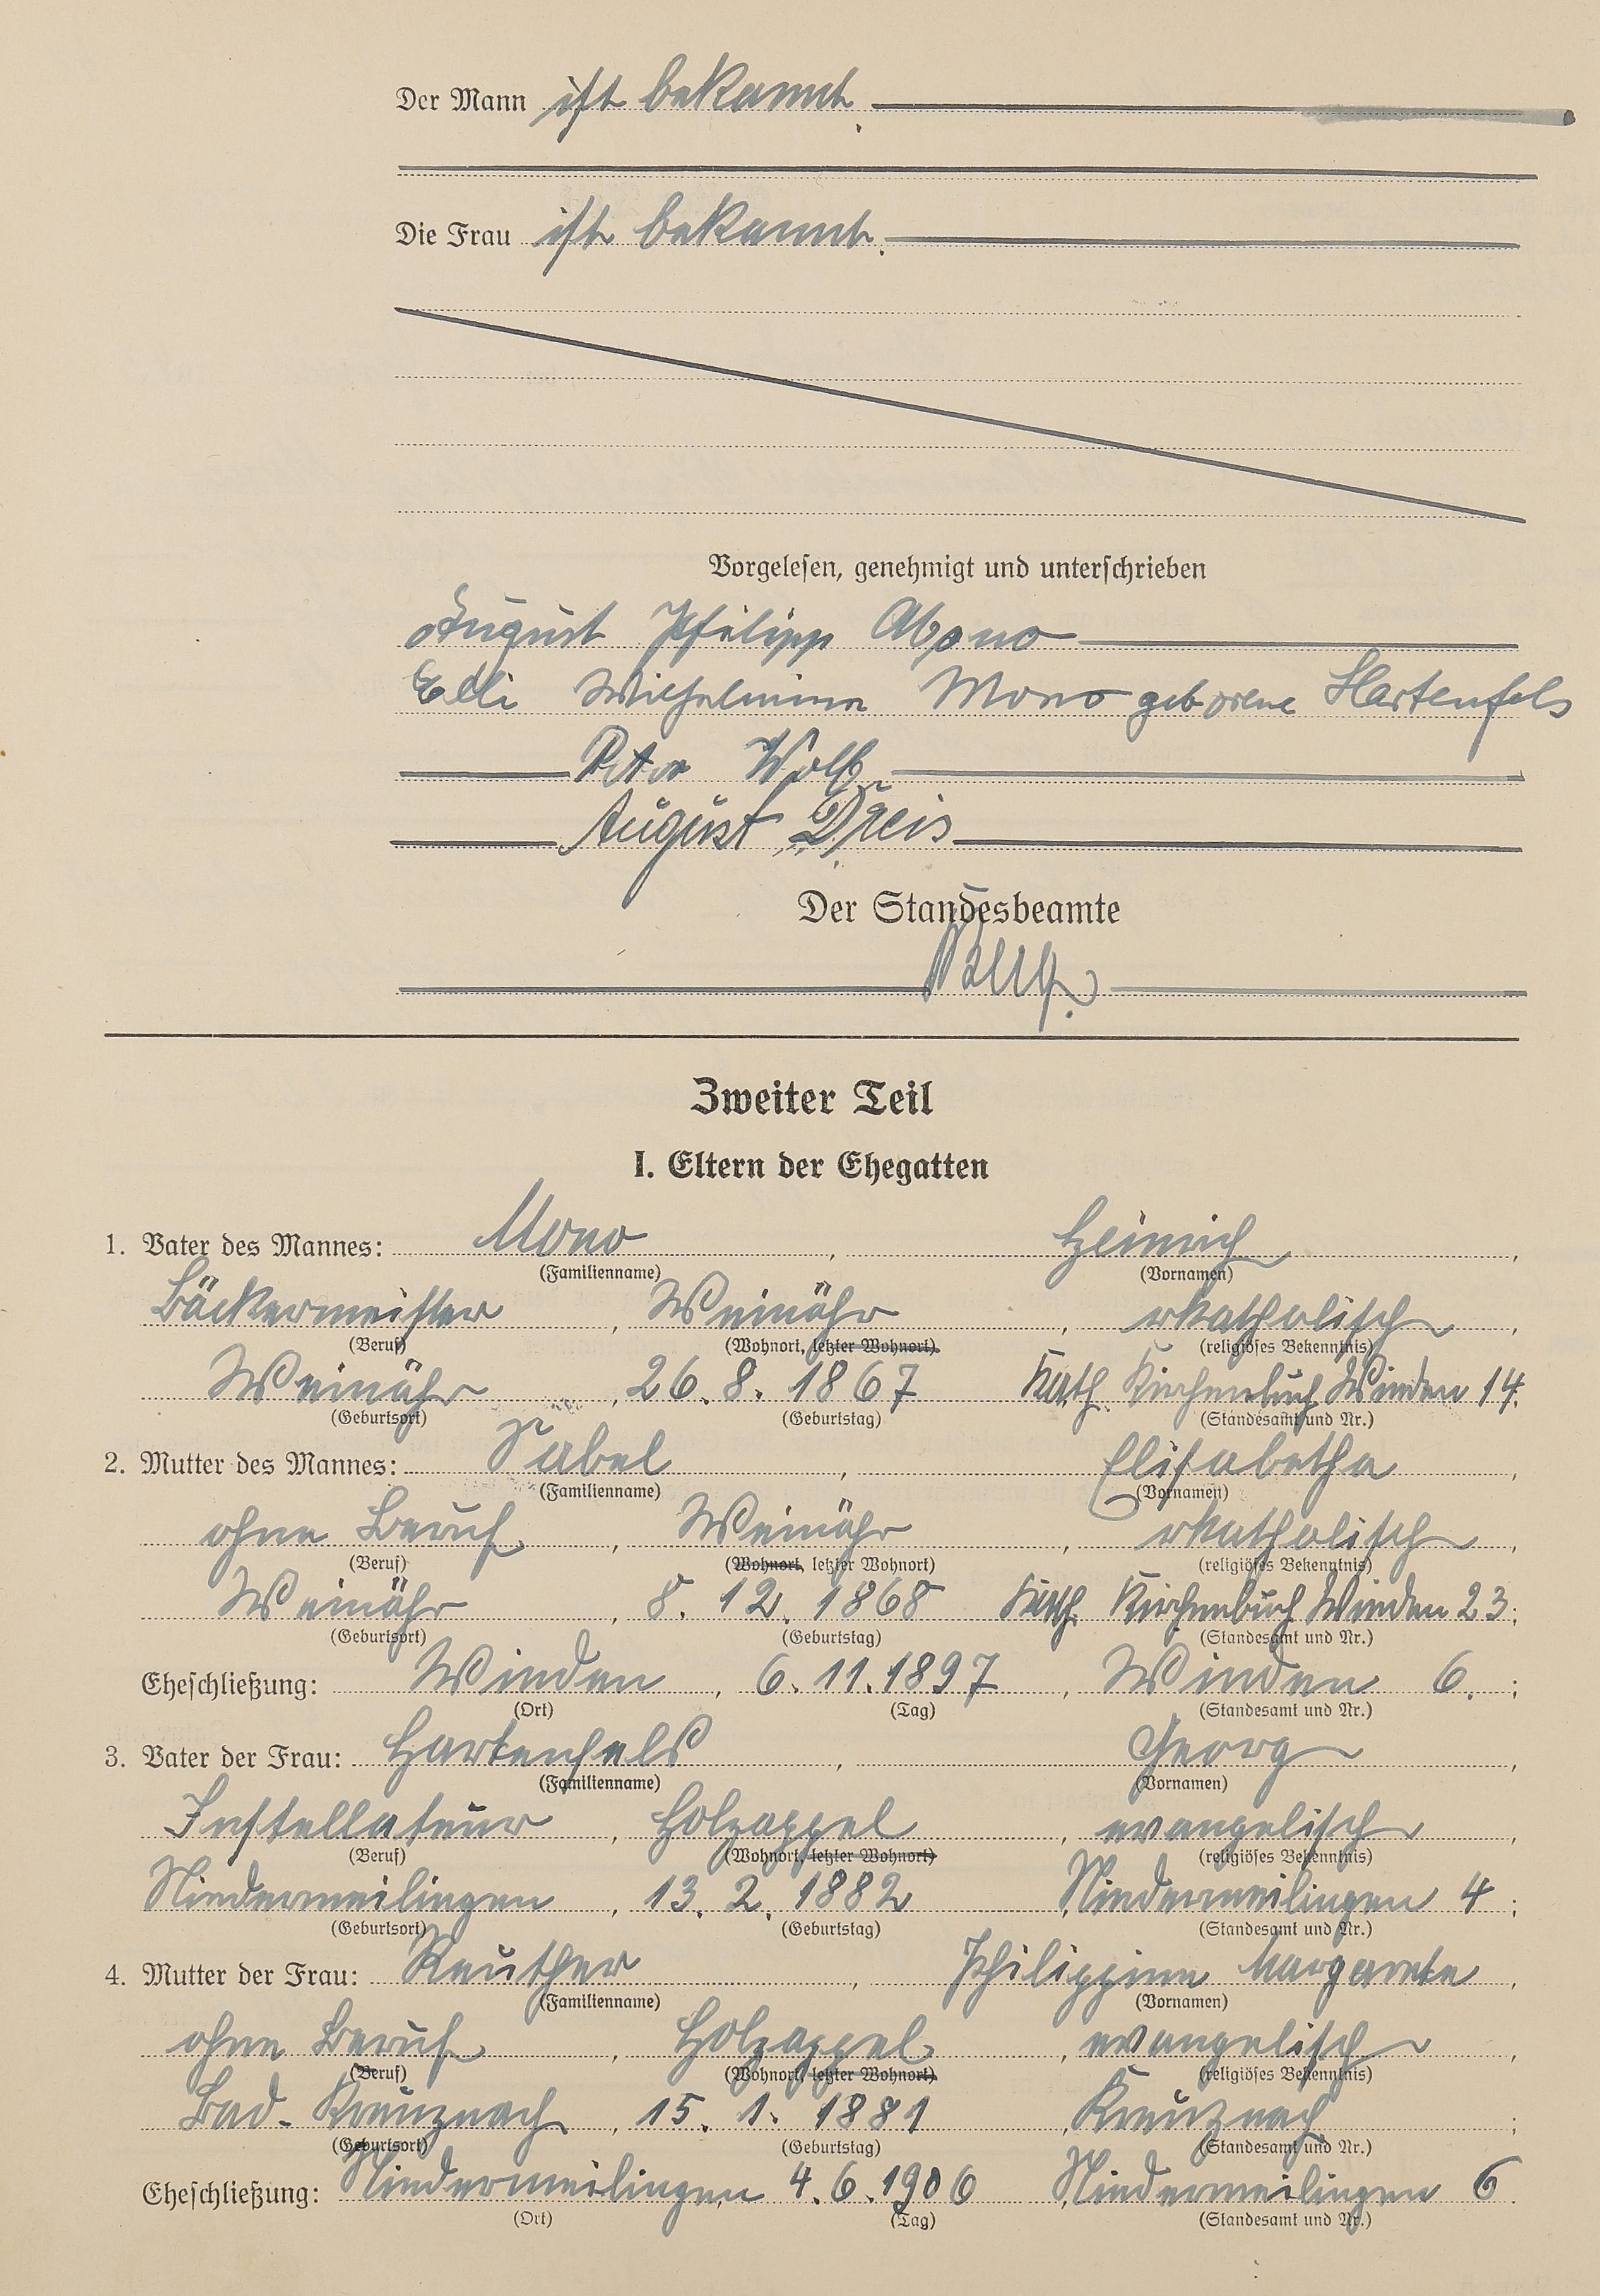 Der Mann ist bekannt.
Die Frau ist bekannt.
Vorgelesen, genehmigt und unterschrieben
August Philipp Mono
Elli Wilhelmina Mono geborene Hartenfels
Peter Wolf
August Dreis
Der Standesbeamte
Zweiter Teil
I. Eltern der Ehegatten
1. Vater des Mannes: Mono, Heinrich,
(Familienname) (Vornamen)
Bäckermeister, Weinähr, rkatholisch,
(Beruf) (Wohnort, letzter Wohnort) (religiöses Bekenntnis)
Weinähr, 26. 8. 1867 Kath. Kirchenbuch Winden 14.
(Geburtsort) (Geburtstag) (Standesamt und Nr.)
2. Mutter des Mannes: Sabel, Elisabetha,
(Familienname) (Vornamen)
ohne Beruf, Weinähr, rkatholisch,
(Beruf) (Wohnort, letzter Wohnort) (religiöses Bekenntnis)
Weinähr, 8. 12. 1868 Kath. Kirchenbuch Winden 23;
(Geburtsort) (Geburtstag) (Standesamt und Nr.)
Eheschließung: Winden, 6. 11. 1897, Winden 6.;
(Ort) (Tag) (Standesamt und Nr.)
3. Vater der Frau: Hartenfels, Georg,
(Familienname) (Vornamen)
Installateur, Holzappel, evangelisch,
(Beruf) (Wohnort, letzter Wohnort) (religiöses Bekenntnis)
Niedermeilingen, 13. 2. 1882, Niedermeilingen 4;
(Geburtsort) (Geburtstag) (Standesamt und Nr.)
4. Mutter der Frau: Reuther, Philippine Margarete,
(Familienname) (Vornamen)
ohne Beruf, Holzappel, evangelisch,
(Beruf) (Wohnort, letzter Wohnort) (religiöses Bekenntnis)
Bad-Kreuznach, 15. 1. 1881, Kreuznach;
(Geburtsort) (Geburtstag) (Standesamt und Nr.)
Eheschließung: Niedermeilingen, 4. 6. 1906, Niedermeilingen 6.
(Ort) (Tag) (Standesamt und Nr.)